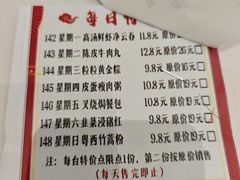 每日
142 星期一高汤鲜虾净云吞 11.8元 原价
143 星期二陈皮牛肉丸 12.8元 原价
144 星期三粒粒黄金粽 9.8元 原价
145 星期四皮蛋瘦肉粥 9.8元 原价15元
146 星期五叉烧焗餐包 9.8元 原价
147 星期六韭菜浸猪红 9.8元 原价19元
148 星期日粤西竹蒿粉 9.8元 原价
注：每台特价点限点1份，第二份按原价销售
（每天售完即止）